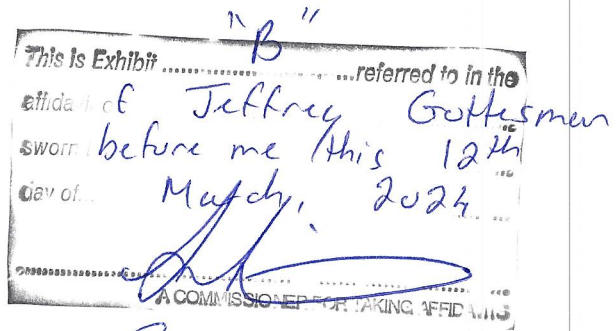 This is Exhibit "B" referred to in the
affidavit of Jeffrey Gottesman
sworn before me this 12th
day of March, 2024
A COMMISSIONER FOR TAKING AFFIDAVITS